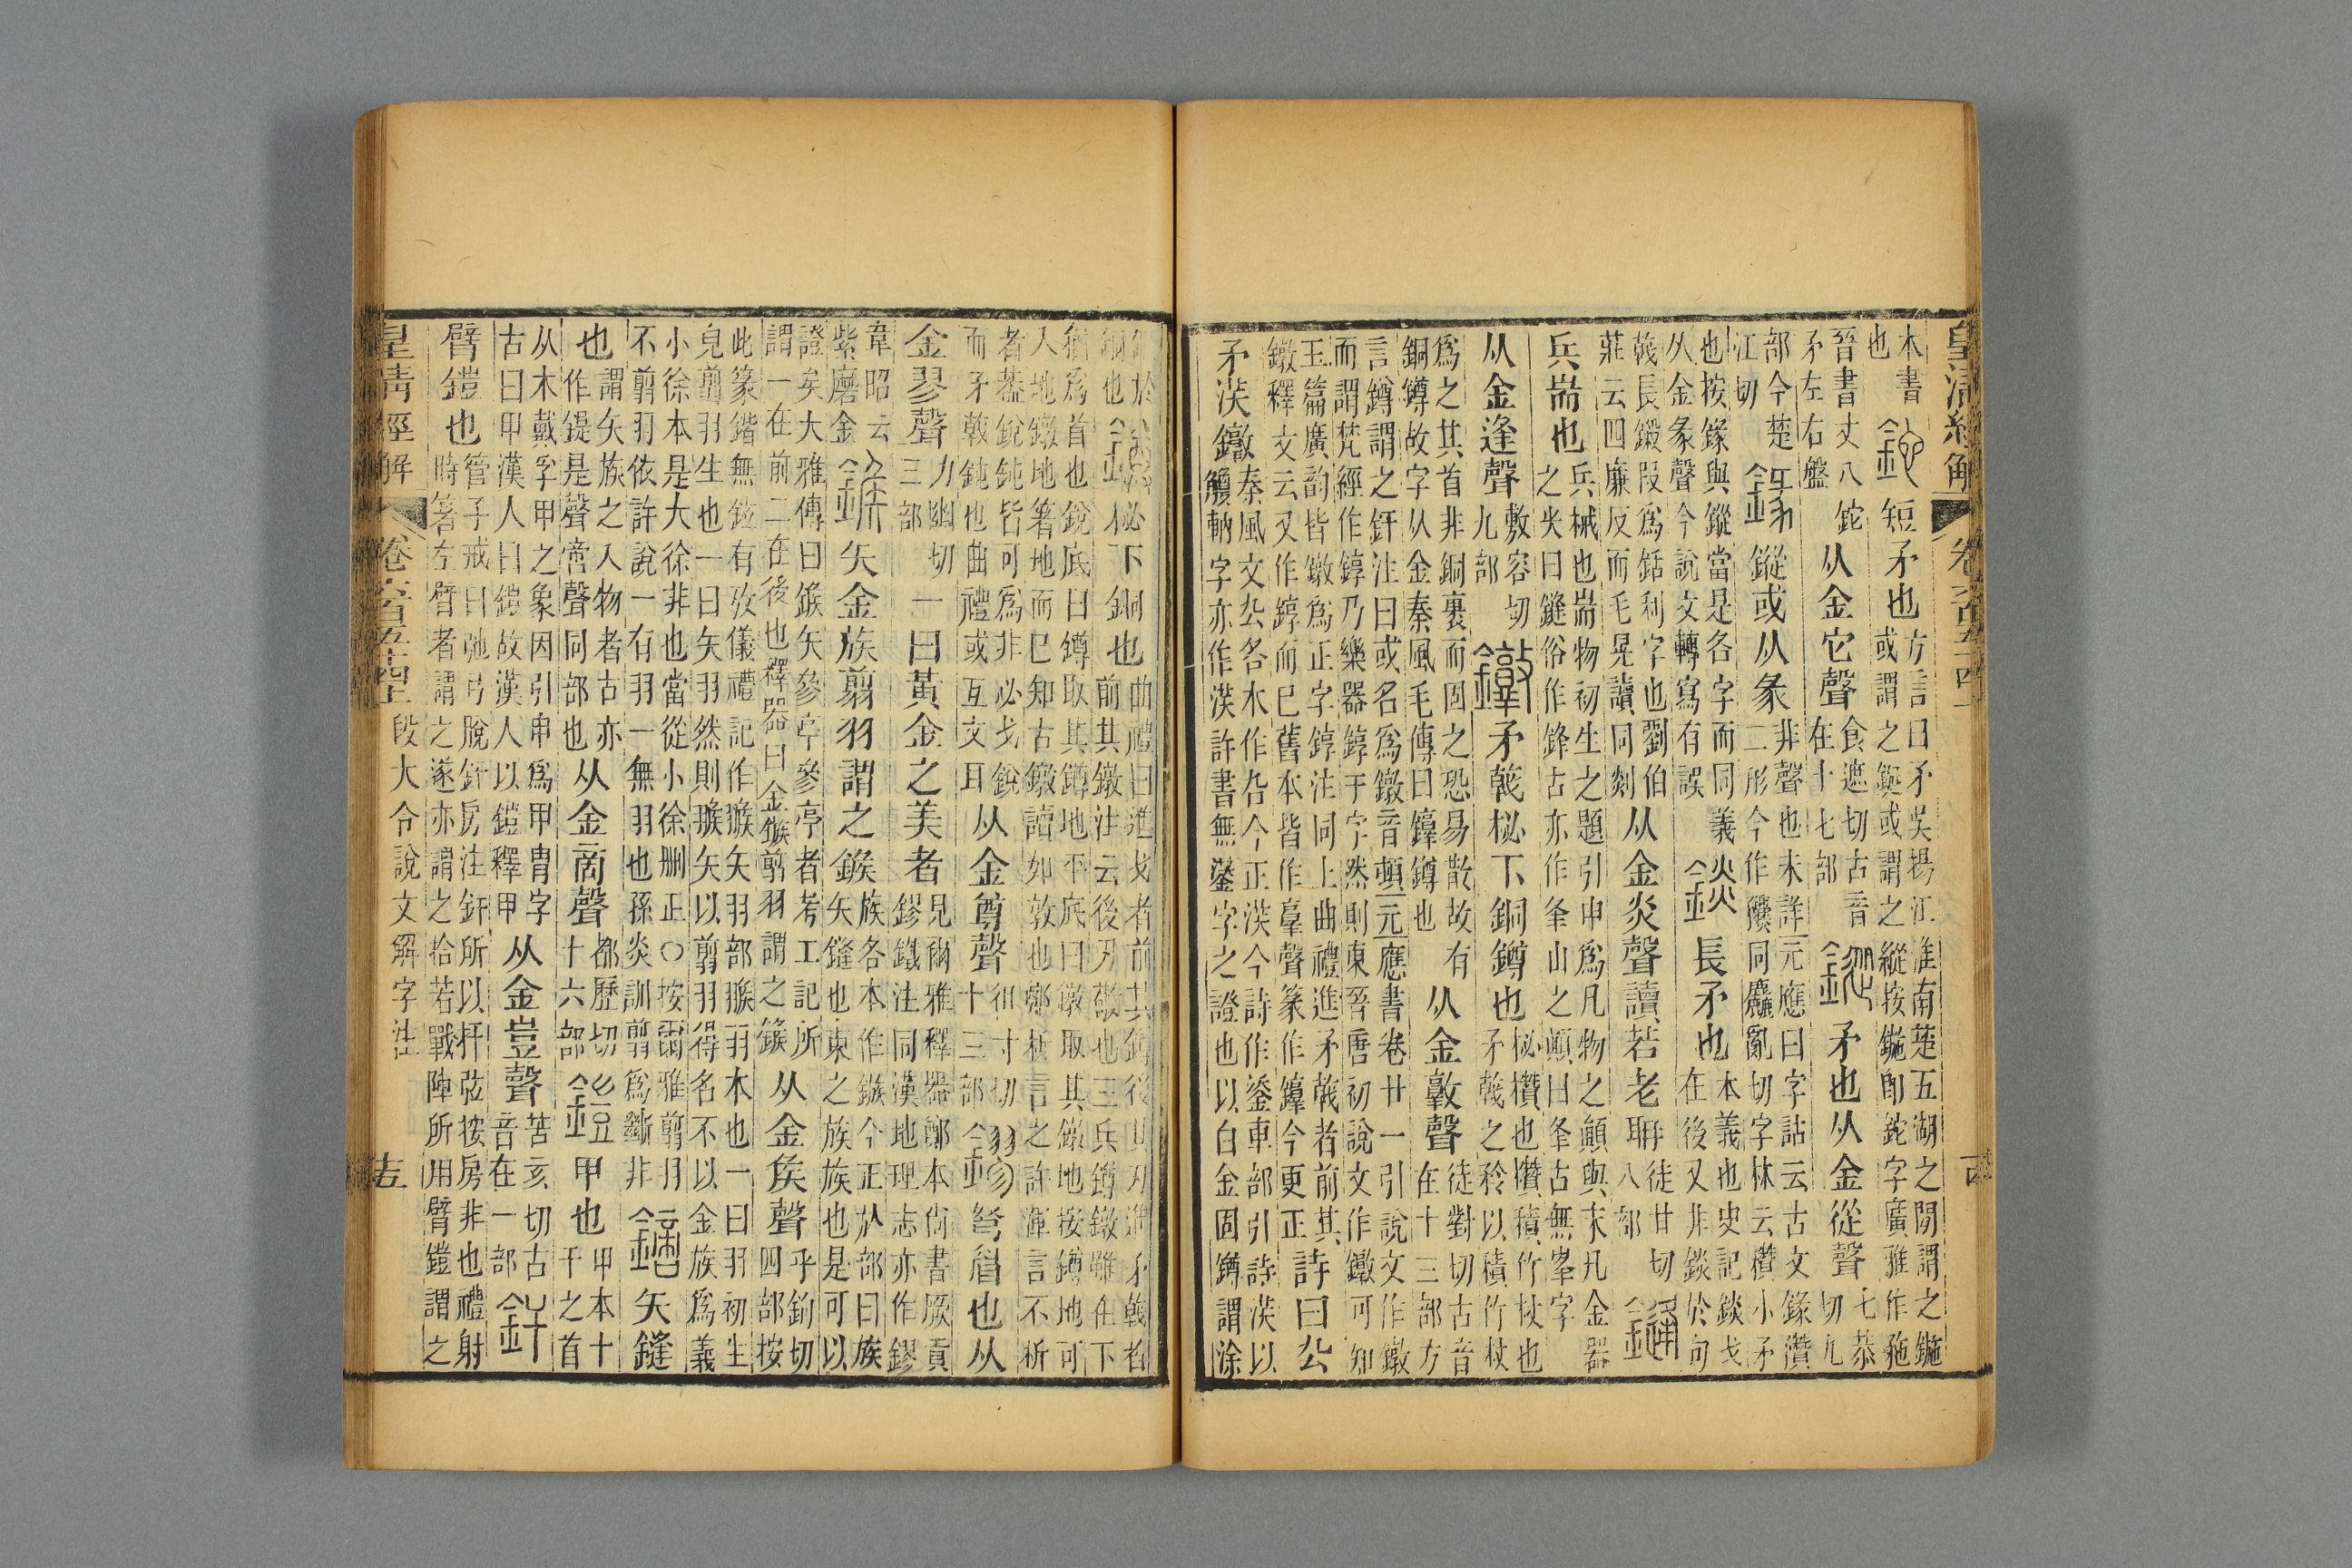 皇清經解 卷六百五十四上
本書也鉈短矛也方言曰矛吳揚江淮南楚五湖之閒謂之鍦或謂之鋋或謂之鏦按鍦卽鉈字廣雅作䂠
晉書丈八鉈矛左右盤从金它聲食遮切古音在十七部鏦矛也从金從聲七恭切九
部今楚江切鏦或从彖非聲也未詳元應曰字詁云古文錄䂎二形今作䂎同麤亂切字林云䂎小矛
也按錄與鏦當是各字而同義从金彖聲今說文轉寫有誤錟長矛也本義也史記錟戈在後又非錟於句
戟長鎩叚爲銛利字也劉伯莊云四廉反而毛晃讀同剡从金炎聲讀若老耼徒甘切八部鏠
兵耑也兵械也耑物初生之題引申爲凡物之顚與末凡金器之尖曰鏠俗作鋒古亦作夆山之顚曰夆古無峯字
从金逢聲敷容切九部鐓矛戟柲下銅鐏也柲欑也欑積竹杖也矛戟之矜以積竹杖
爲之其首非銅裹而固之恐易散故有銅鐏故字从金秦風毛傳曰錞鐏也从金𦎫聲徒對切古音在十三部方
言鐏謂之釬注曰或名爲鐓音頓元應書卷廿一引說文作鐓而謂梵經作錞乃樂器錞于字然則東晉唐初說文作鐓可知
玉篇廣韵皆鐓爲正字錞注同上曲禮進矛戟者前其鐓釋文云又作錞而巳舊本皆作𦎫聲篆作錞今更正詩曰厹
矛沃鐓秦風文厹各本作叴今正沃今詩作鋈車部引詩沃以觼軜字亦作沃許書無鋈字之證也以白金固鐏謂涂
銅於銅也鐏柲下銅也曲禮曰進戈者前其鐏後其刃進矛戟者前其鐓注云後刃敬也三兵鐏鐓雖在下
猶爲首也銳底曰鐏取其鐏地平底曰鐓取其鐓地按鐏地可入地鐓地箸地而巳知古鐓讀如敦也鄭析言之許渾言不析
者葢銳鈍皆可爲非必戈銳而矛戟鈍也曲禮或互文耳从金尊聲徂寸切十三部鏐弩眉也从
金翏聲力幽切三部一曰黃金之美者見爾雅釋器鄭本尙書厥貢鏐鐵注同漢地理志亦作鏐
韋昭云紫磨金鍭矢金族翦羽謂之鍭族各本作鏃今正㫃部曰族矢鏠也束之族族也是可以
證矣大雅傳曰鍭矢參亭參亭者考工記所謂一在前二在後也釋器曰金鏃翦羽謂之鍭从金矦聲乎鉤切四部按
此篆鍇無鉉有攷儀禮記作翭矢羽部翭羽本也一曰羽初生皃翦羽生也一曰矢羽然則翭矢以翦羽得名不以金族爲義
小徐本是大徐非也當從小徐刪正○按爾雅翦羽不翦羽依許說一有羽一無羽也孫炎訓翦爲斷非鏑矢鏠
也謂矢族之入物者古亦作鍉是聲啻聲同部也从金啇聲都歷切十六部鎧甲也甲本十干之首
从木戴孚甲之象因引申爲甲冑字古曰甲漢人曰鎧故漢人以鎧釋甲从金豈聲苦亥切古音在一部釬
臂鎧也管子戒曰弛弓脫釬房注釬所以扞弦按房非也禮射時箸左臂者謂之遂亦謂之拾若戰陣所用臂鎧謂之
皇清經解 卷六百五十四上 段大令說文解字注